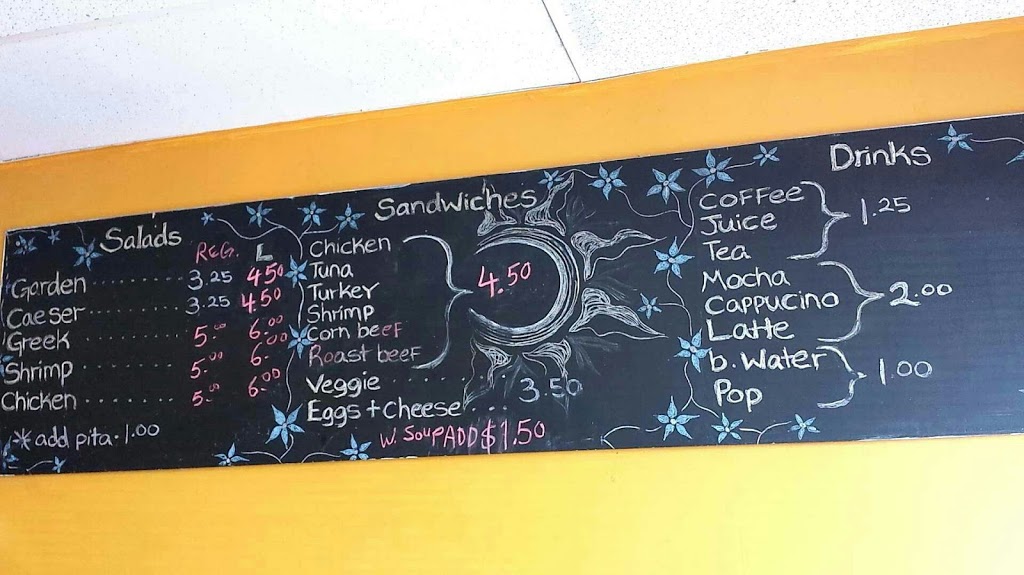 Salads
REG. L
Garden ........... 3.25 4.50
Caeser ........... 3.25 4.50
Greek ........... 5.00 6.00
Shrimp ........... 5.00 6.00
Chicken ........... 5.00 6.00
* add pita . 1.00
Sandwiches
Chicken
Tuna
Turkey
Shrimp
Corn beef
Roast beef
4.50
Veggie ......
Eggs + Cheese ... 3.50
W. Soup ADD $1.50
Drinks
Coffee
Juice
Tea
1.25
Mocha
Cappucino
Latte
2.00
b. Water
Pop
1.00